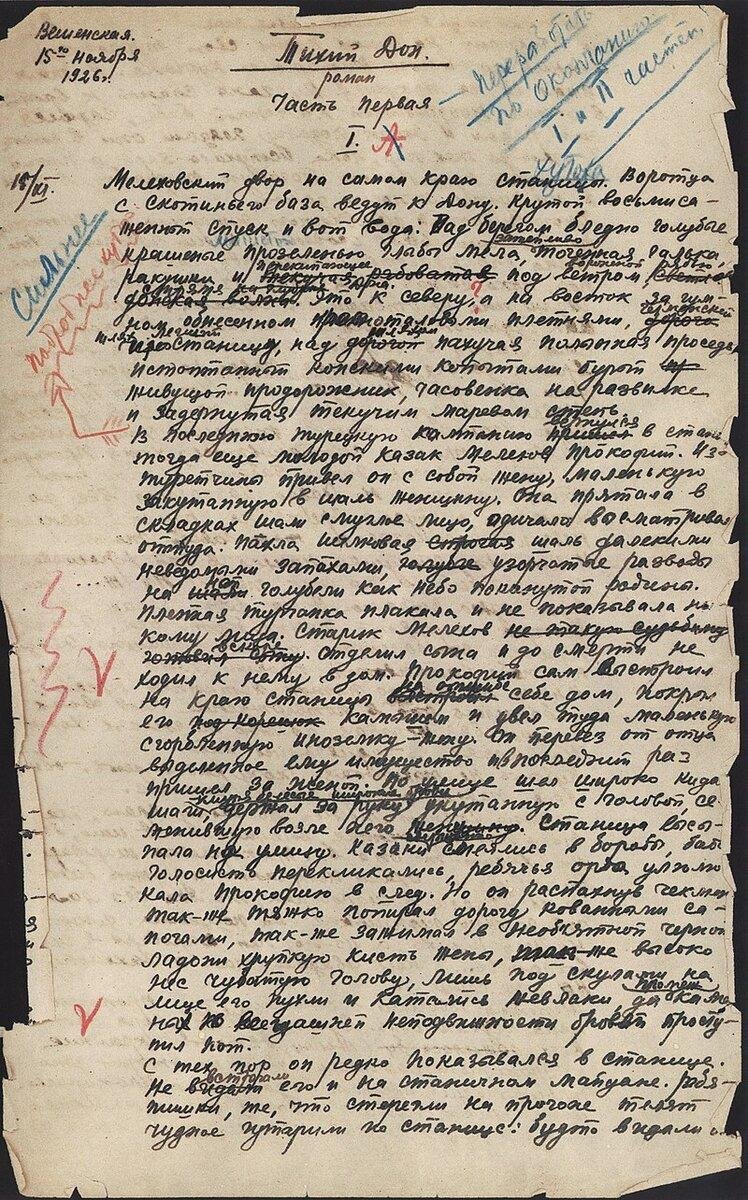 Вешенская.
15го ноября
1926г.
Тихий Дон.
роман
Часть первая
I. A
— Переработать
по окончанию
I и II частей
хутора
15/XI.
Сильнее
подробнее
Мелеховский двор на самом краю станицы. Воротца
с скотиньего база ведут к Дону. Крутой восьмиса-
женный спуск и вот вода: Над берегом бледно голубые
крашеные прозеленью глыбы мела, точенная галька,
ракушки и перекипающее под ветром
Дона. Это к северу, а на восток за гум-
ном обнесенном плетнями,
станицу, над дорогой пахучая полынная проседь
истоптанный конскими копытами бурый
живущой придорожник, часовенка на развилке
и задернутая текучим маревом степь
В последнюю турецкую кампанию вернулся в стан.
тогда еще молодой казак Мелехов Прокофий. Из
туретчины привел он с собой жену, маленькую
закутанную в шаль женщину. Она прятала в
складках шали смуглое лицо, одичало высматривая
оттуда. Пахла шелковая шаль далекими
неведомыми запахами, узорчатые разводы
на ней голубели как небо покинутой родины.
Пленная турчанка плакала и не показывала ни-
кому лица. Старик Мелехов не такую судьбину
готовил сыну. вскоре отделил сына и до смерти не
ходил к нему в дом. Прокофий сам выстроил
на краю станицы себе дом, покрыл
его камышом и увел туда маленькую
сгорбленную иноземку-жену. Он перевез от отца
выделенное ему имущество и в последний раз
пришел за женой. По улице шел широко кидая
шаги, держал за руку укутанную с головой се-
менившую возле него женщину. Станица высы-
пала на улицу. Казаки смеялись в бороды, бабы
голосисто перекликались, ребячья орда улюлю-
кала Прокофию в след. Но он распахнув чекмен
так-же тяжко попирал дорогу кованными са-
погами, так-же зажимал в необъятной черной
ладони хрупкую кисть жены, так-же высоко
нес чубатую голову, лишь под скулами на
лице его пухли и катались желваки, да промеж каме
ных в всегдашней неподвижности бровей просту-
пил пот.
С тех пор он редко показывался в станице.
Не видали его и на станичном майдане. Ребя-
тишки, те, что стерегли на прогоне телят
чудное гутарили по станице: будто видали